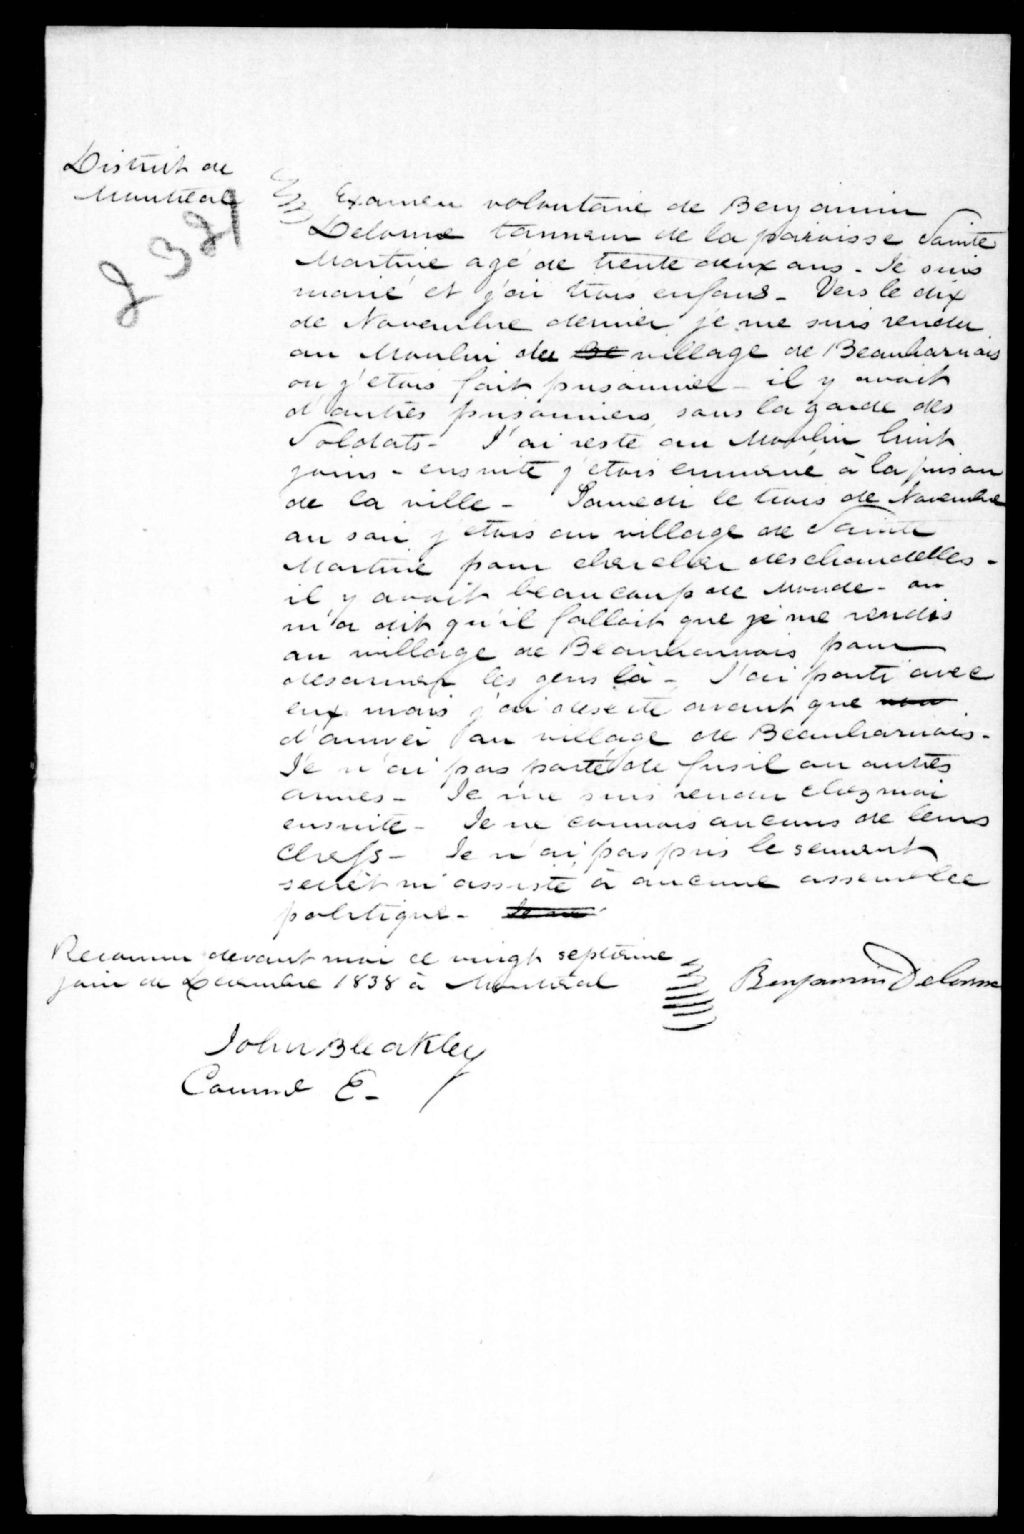 District de
Montréal
2321
Examen volontaire de Benjamin
Delorme tanneur de la paroisse Sainte
Martine agé de trente deux ans - Je suis
marié et j'ai trois enfans - Vers le dix
de Novembre dernier je me suis rendu
au Moulin du village de Beauharnais
ou j'etois fait prisonnier - il y avoit
d'autres prisonniers sous la garde des
Soldats - J'ai resté au Moulin huit
jours - ensuite j'etois emmené à la prison
de la ville - Samedi le trois de Novembre
au soir j'etois au village de Sainte
Martine pour chercher des chandelles -
il y avoit beaucoup de monde - on
m'a dit qu'il falloit que je me rendis
au village de Beauharnois pour
desarmer les gens là - J'ai parti avec
eux mais j'ai deserté avant que
d'arriver au village de Beauharnois -
Je n'ai pas porté de fusil ou autres
armes - Je me suis rendu chez moi
ensuite - Je ne connois aucuns de leurs
Chefs - Je n'ai pas pris le serment
secrêt ni assisté à aucune assemblée
politique -
Reconnu devant moi ce vingt septième
jour de Decembre 1838 à Montréal
Benjamin Delorme
John Bleakley
Commr E -